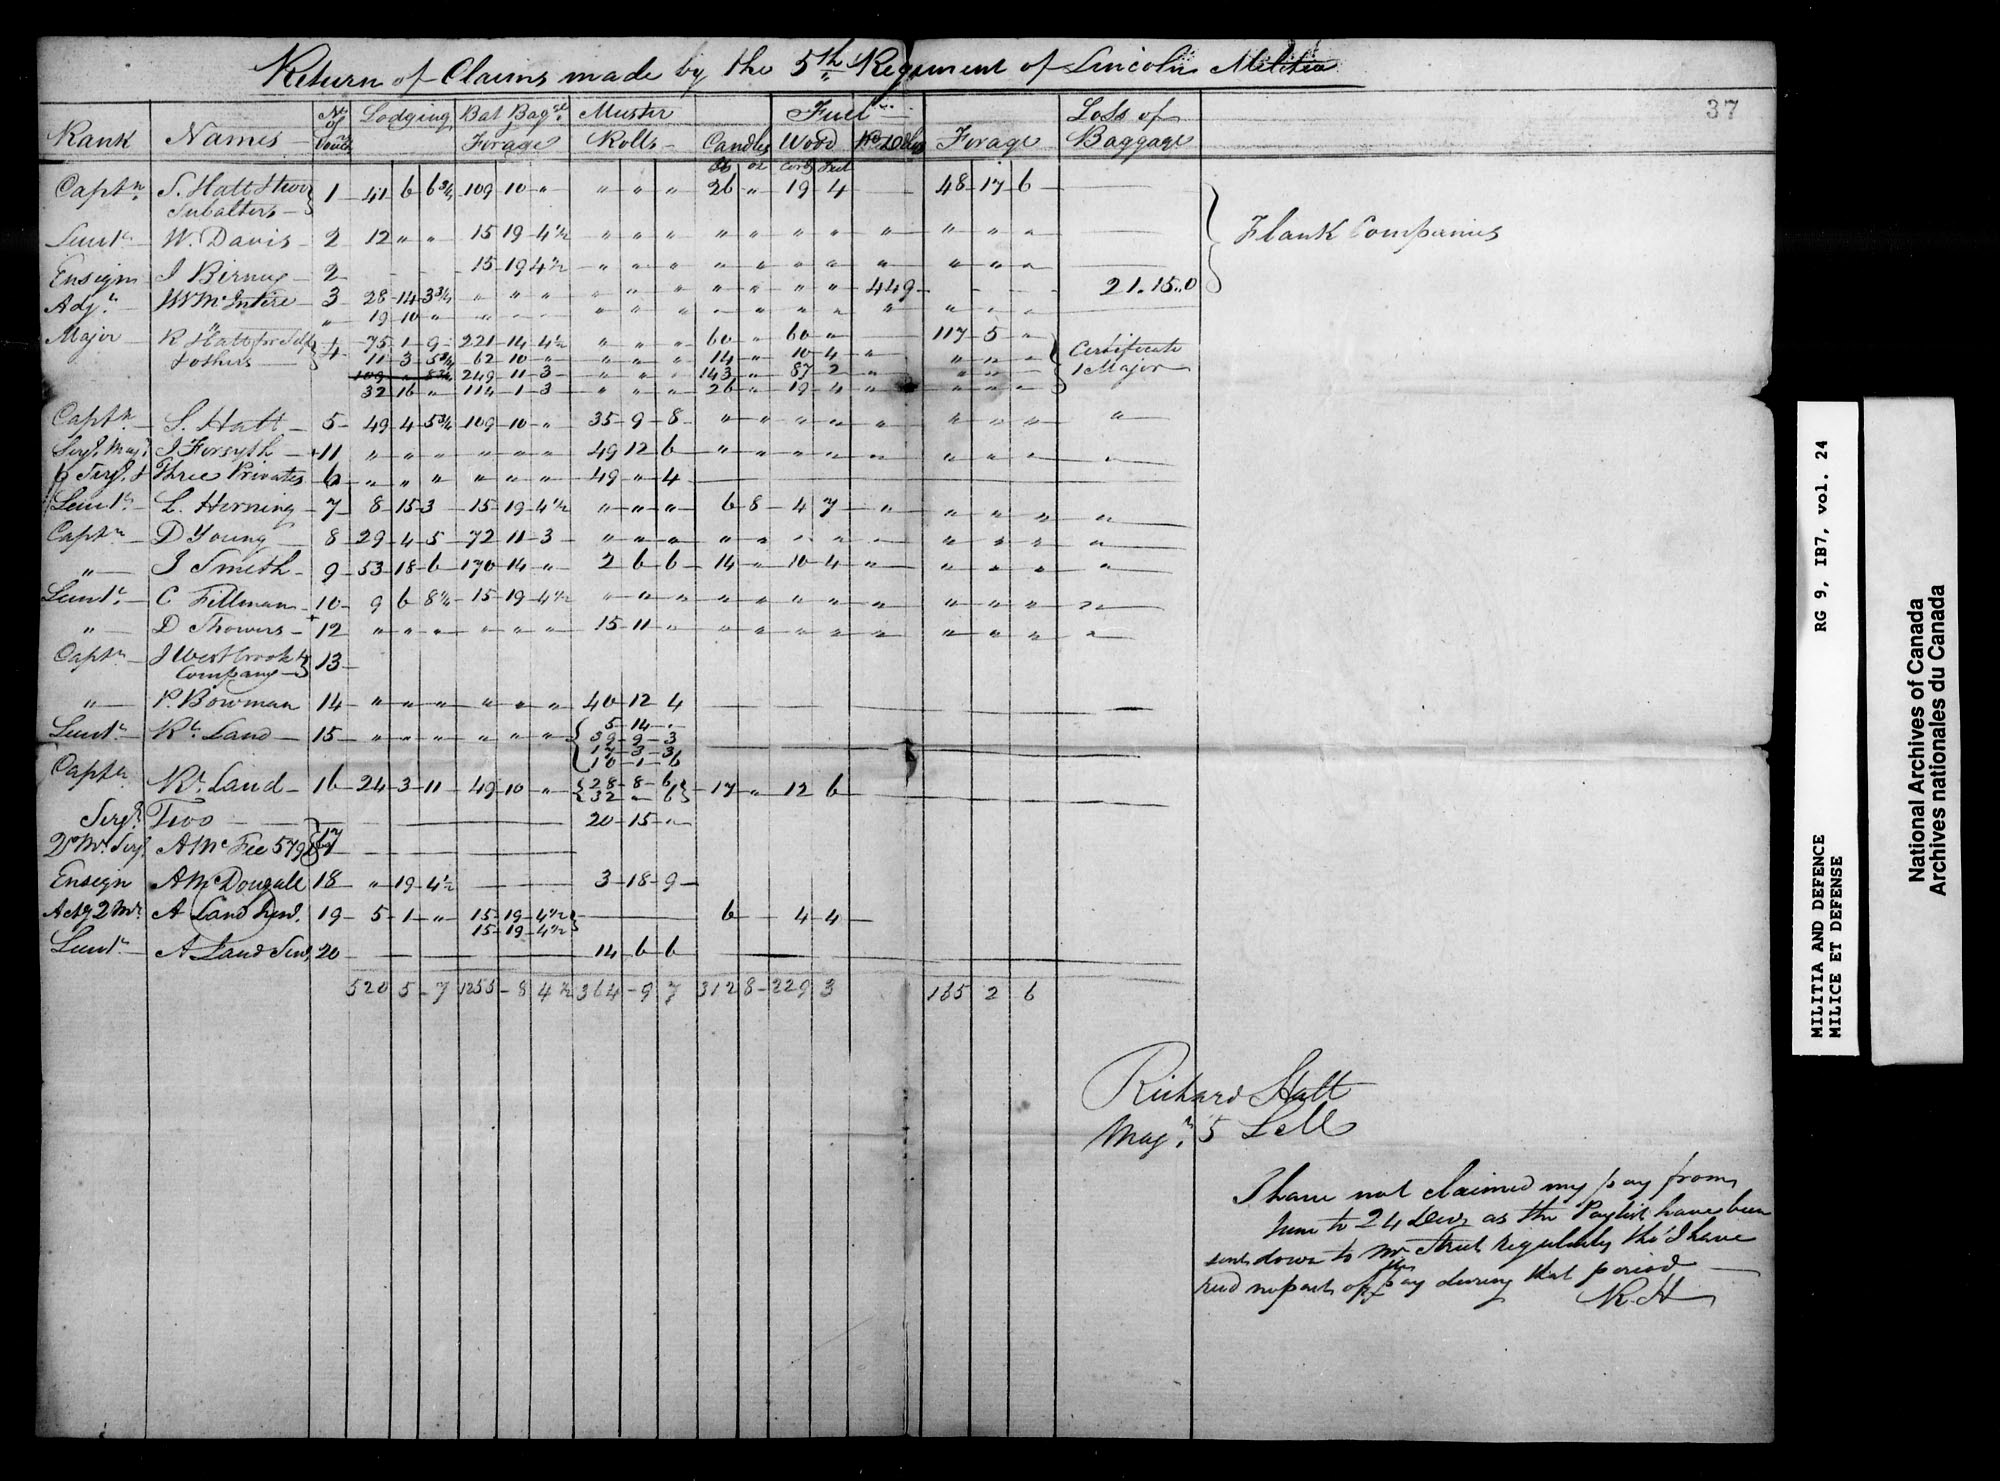 Return of Claims made by the 5th Regiment of Lincoln Militia
37
Rank Names No of Vouch Lodging Bat Bage. Forage Muster Rolls Fuel Candles Wood Forage Loss of Baggage
lb oz Cord Feet
Captn. S. Hatt & two Subalterns 1 41 6 6 3/4 109 10 " " " " 26 " 19 4 48 17 6
Flank Companies
Lieut. W. Davis 2 12 " " 15 19 4 1/2 " " " " " " " " " " "
Ensign J Birney 2 15 19 4 1/2 " " " " " " " " " " "
Adjt. W McIntire 3 28 14 3 3/4 " " " " " " " " " " 449 21.15.0
" " 19 10 " " " " " " " " " " " " " " "
Major R Hatt for self & others 4 75 1 9 221 14 4 1/2 " " " 60 " 60 " 117 5 "
4 11 3 5 3/4 62 10 " " " " 14 " 10 4 " " " "
109 " 8 3/4 249 11 3 " " " 143 " 87 2 " " " "
32 16 " 114 1 3 " " " 26 " 19 4 " " " "
Certificate
1 Major
Captn. S. Hatt 5 49 4 5 3/4 109 10 " 35 9 8 " " " " " " " " "
Serjt. Majr. J Forsyth 11 " " " " " " 49 12 6 " " " " " " " " "
6 Serjts. & Three Privates 6 " " " " " " 49 " 4
Lieut. L. Herning 7 8 15 3 15 19 4 1/2 " " " 6 8 4 7 " " " " "
Captn. D Young 8 29 4 5 72 11 3 " " " " " " " " " " " "
" J Smith 9 53 18 6 170 14 " 2 6 6 14 " 10 4 " " " " "
Lieut. C Fillman 10 9 6 8 1/4 15 19 4 1/2 " " " " " " " " " " " "
" D Showers 12 " " " " " " 15 11 " " " " " " " " " "
Captn. J Westbrook & Company 13
" P. Bowman 14 " " " " " " 40 12 4
Lieut. Rt. Land 15 " " " " " " 5 14 "
39 9 3
17 3 3
10 1 6
Captn. Rt. Land 16 24 3 11 49 10 " 28 8 6 17 " 12 6
32 " 6
Serjt. Two 20 15 "
Qr. Mr. Serjt. A McFee 579 17
Ensign A McDougall 18 " 19 4 1/2 3 18 9
Actg Q Mr. A Land Junr. 19 5 1 " 15 19 4 1/2 6 4 4
15 19 4 1/2
Lieut. A Land Senr. 20 14 6 6
520 5 7 1255 8 4 1/2 364 9 7 312 8 229 3 165 2 6
Richard Hatt
Majr. 5 L M
I have not claimed my pay from
June to 24 Decr as the Paylist have been
sent down to Mr Street regularly tho' I have
recd no part of the pay during that period
R. H
MILITIA AND DEFENCE RG 9, IB7, vol. 24
MILICE ET DEFENSE
National Archives of Canada
Archives nationales du Canada